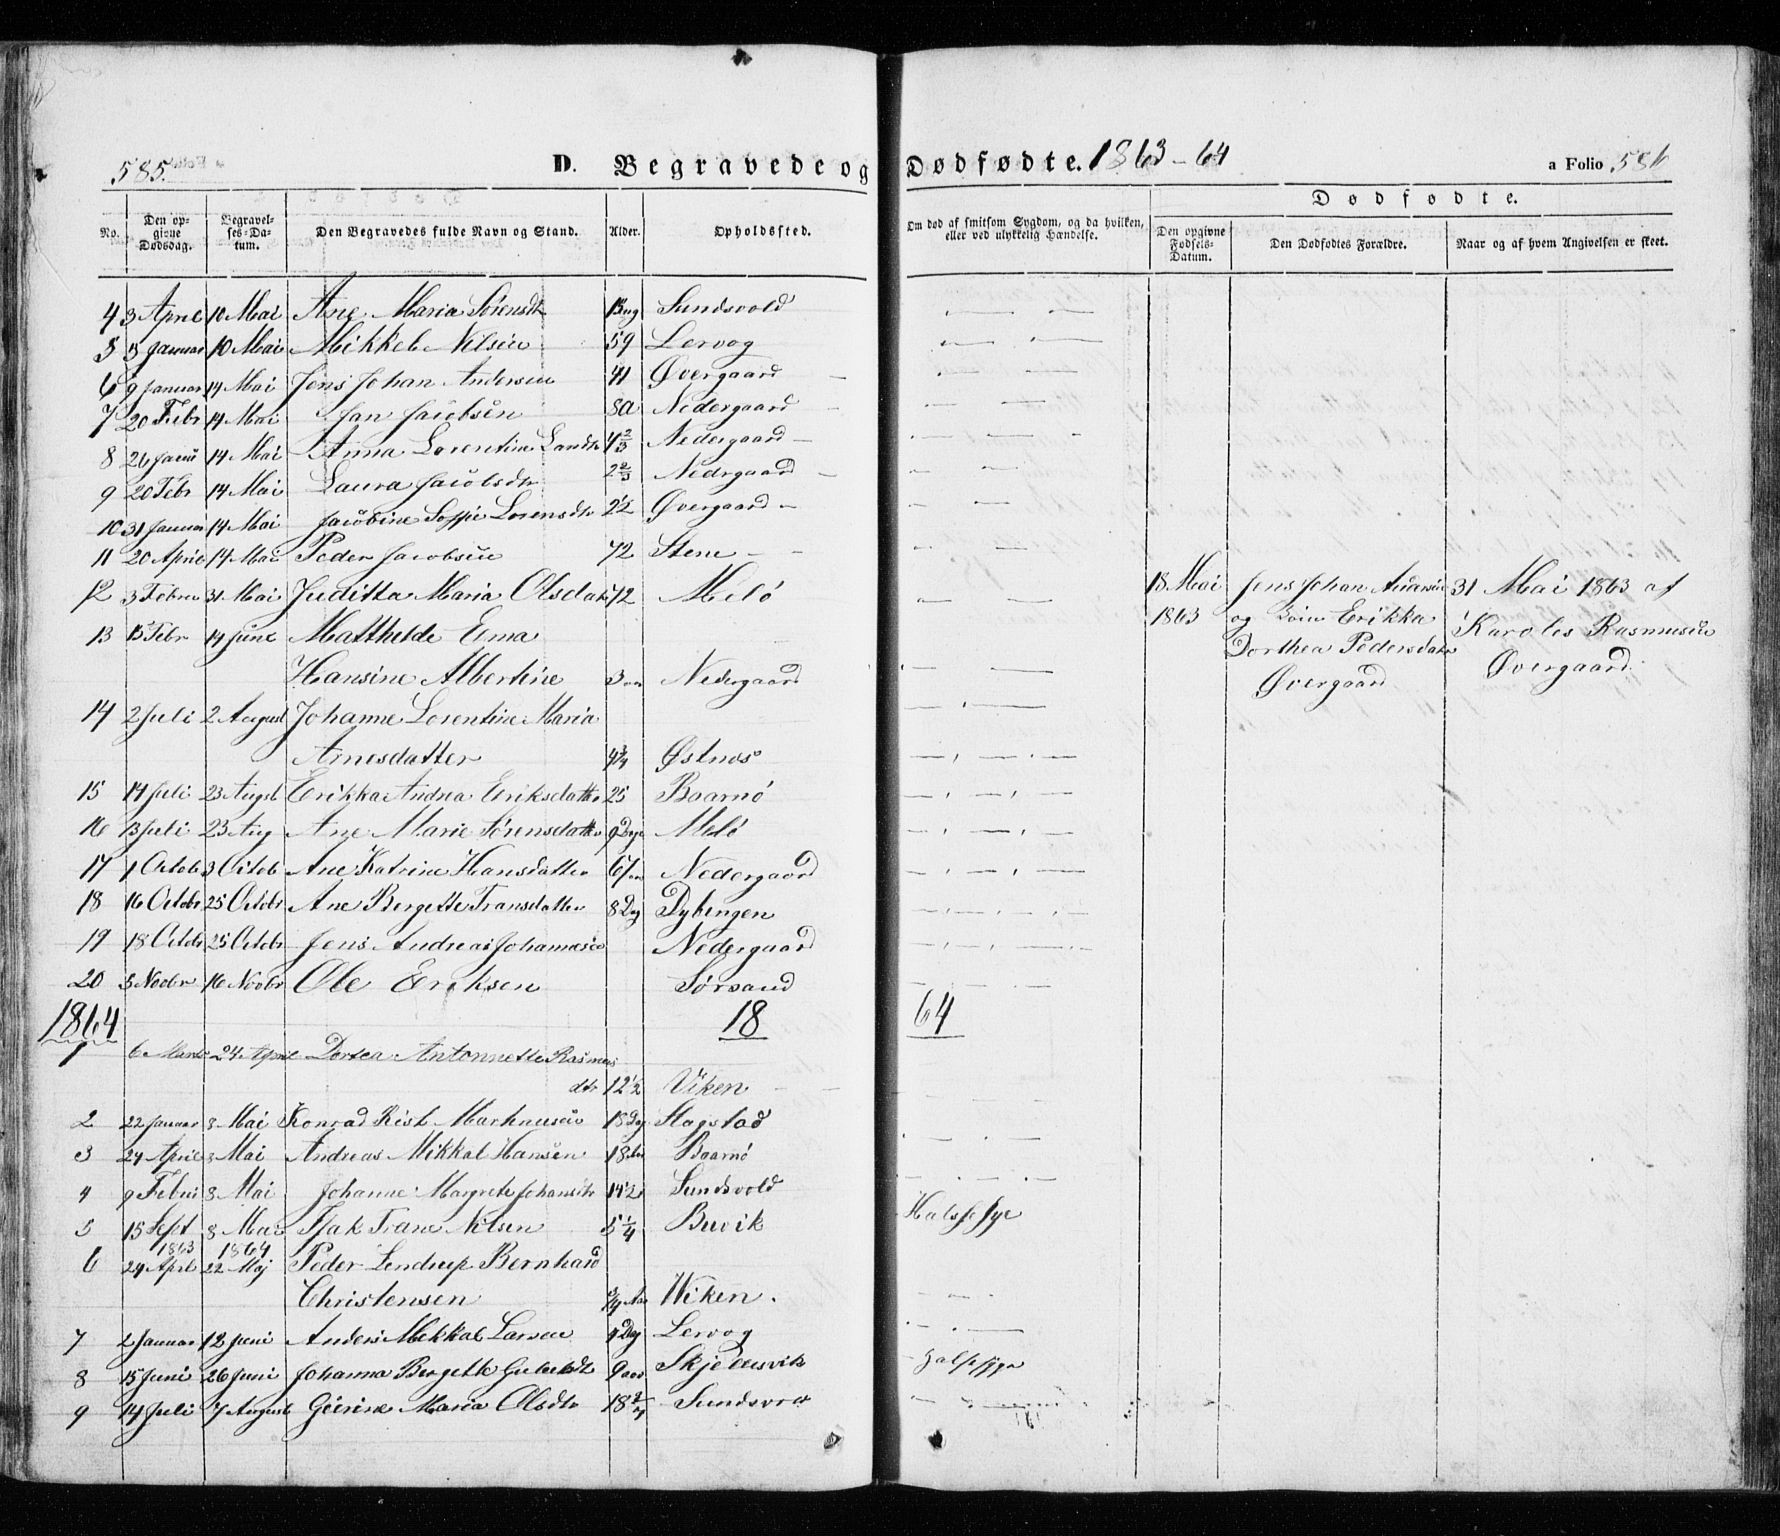 585.
D. Begravede og Dødfødte. 1863-64
a Folio 586
No. Den opgivne Dødsdag. Begravelses-Datum. Den Begravedes fulde Navn og Stand. Alder. Opholdssted.
Om død af smitsom Sygdom, og da hvilken, eller ved ulykkelig Hændelse.
Dødfødte.
Den opgivne Fødsels-Datum. Den Dødfødtes Forældre. Naar og af hvem Angivelsen er skeet.
4 3 April 10 Mai Ane Maria Sørensdtr Sundsvold
5 Januar 10 Mai Mikkel Nilsen 59 Lervog
6 9 Januar 14 Mai Jens Johan Andersen 41 Øvergaard
7 20 Febr 14 Mai Jan Jacobsen 80 Nedergaard
8 26 Janu 14 Mai Anna Lorentine 4 2/3 Nedergaard
9 20 Febr 14 Mai Laura Jacobsdtr 2 2/3 Nedrgaard
10 31 Januar 14 Mai Jacobine Soffie Lorensdtr 2 1/2 Øvergaard
11 20 April 14 Mai Peder Jacobsen 72 Stene
12 3 Febru 31 Mai Juditta Maria Olsdatr 72 Melø
18 Mai 1863 Jens Johan Andersen og Erikka Dorthea Pedersdatr Øvergaard
31 Mai 1863 af Karolus Rasmusen Øvergaard
13 15 Febr 14 June Matthilde Erna
Hansine Albertine 3 Nedergaard
14 2 Juli 2 August Johanne Lorentine Maria
Arnesdatter 4 3/4 Østnes
15 14 Juli 23 Augst Erikka Andrea Eriksdatter 25 Baarnø
16 13 Juli 23 Aug Ane Marie Sørensdatter 9 Dge Melø
17 1 Octob 3 Octob Ane Katrine Hansdatter 67 Nedergaard
18 16 Octobr 25 Octobr Ane Bergette Fransdatter 8 Dg Dybingen
19 18 Octbr 25 Octobr Jens Andreas Johannesen Nedergaard
20 3 Novbr 16 Novbr Ole Eriksen Sørsand
1864 18 64
1 6 Marts 24 April Dortea Antonnette Rasmus
dtr 12 1/2 Viken
2 22 Januar 8 Mai Konrad Rist Martinusen 18 Dg Stapstad
3 24 April 8 Mai Andreas Mikkal Hansen 18 Baarnø
4 9 Febru 8 Mai Johanne Margrete Johansdtr 14 1/2 Sundsvold
5 15 Sept 1863 8 Mai 1864 Isak Frans Nilsen 5 1/4 Buvik Halssyge
6 24 April 22 Maj Peder Lendrup Bernhard
Christensen 3/4 Aar Wiken.
7 2 Januar 12 Juni Anders Mikkal Larsen 4 Dg Lervog
8 15 Juni 26 Juni Johanna Bergette 9 Skjelesvik Halssyge
9 14 Juli 7 August Gurine Maria Olsdtr 18